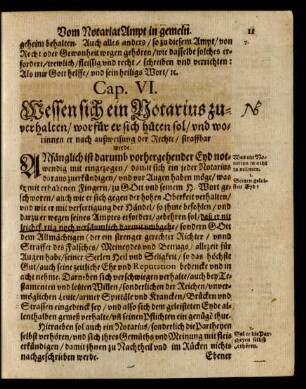 Vom Notariat Ampt in gemein. 11
geheim behalten. Auch alles anders / so zu diesem Ampt / von
Recht oder Gewonheit wegen gehören / wie dasselbe solches er-
fordert / trewlich / fleissig und recht / schreiben und verrichten:
Als mir Gott helffe / und sein heiligs Wort / ꝛc.
Cap. VI.
Wessen sich ein Notarius zu-
verhalten / worfür er sich hüten sol / vnd wo-
rinnen er nach außweisung der Rechte / straffbar
werde
ANfänglich ist darumb vorhergehender Eyd not-
wendig mit eingezogen / damit sich ein jeder Notarius
daraus zuerkündigen / und vor Augen haben möge / was
er mit erhabenen Fingern / zu Gott und seinem H. Wort ge-
schworn / auch wie er sich gegen der hohen Oberkeit verhalten /
und wie er mit verfertigung der Händel / so ihme befohlen / und
darzu er wegen seines Amptes erfordert / gebehren sol / daß er nit
leichtfertig noch verdamlich darmit umbgehe / sondern GOtt
dem Allmächtigen (der ein strenger gerechter Richter / und
Straffer des Falsches / Meineydes und Betrugs) allezeit für
Augen habe / seiner Seelen Heil und Seligkeit / so das höchste
Gut / auch sein zeitliche Ehr und Reputation bedencke und in
acht nehme. Darneben sich verschwiegen verhalte / auch bey Te-
stamenten und letzten Willen / sonderlichen der Reichen / unver-
möglichen Leute / armer Spittäle und Krancken / Brücken und
Strassen eingedenck sey / und also sich dem geleisteten Eyde al-
lenthalben gemeß verhalte /
Hierneben sol auch ein Notarius / sonderlich die Partheyen
selbst verhören / und sich ihres Gemüths und Meinung mit fleis
erkündigen / damit ihnen zu Nachtheil und im Rücken nichts
nachgeschrieben werde. Ebener